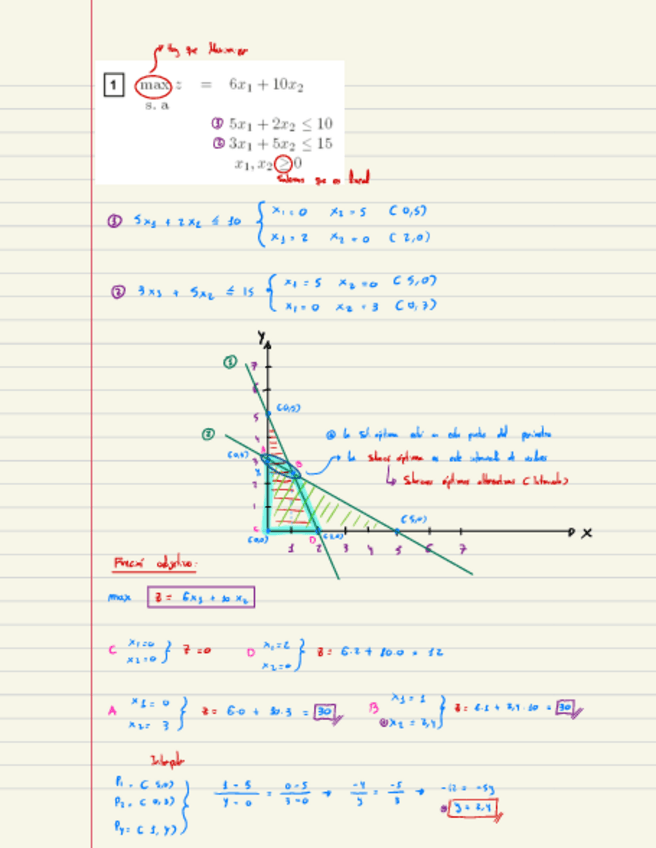 Hay que Maximizar
1 max z = 6x₁ + 10x₂
s. a
① 5x₁ + 2x₂ ≤ 10
② 3x₁ + 5x₂ ≤ 15
x₁, x₂ ≥ 0
① 5x₁ + 2x₂ ≤ 10 { x₁ = 0 x₂ = 5 (0,5)
x₁ = 2 x₂ = 0 (2,0)
② 3x₁ + 5x₂ ≤ 15 { x₁ = 5 x₂ = 0 (5,0)
x₁ = 0 x₂ = 3 (0,3)
Y
① 7
6
5 (0,5)
② 4
(0,3) A 3 B
2
1
(5,0)
C (0,0) D (2,0) X
1 2 3 4 5 6 7
la sol óptima está en este punto del perímetro
la solución óptima es este intervalo de valores
Soluciones óptimas alternativas (Intervalo)
Función objetivo:
max z = 6x₁ + 10x₂
C x₁=0 x₂=0 } z=0 D x₁=2 x₂=0 } z = 6·2 + 10·0 = 12
A x₁ = 0 x₂ = 3 } z = 6·0 + 10·3 = 30 B x₁ = 1 x₂ = 2,4 } z = 6·1 + 2,4·10 = 30
P₁ = (5,0)
P₂ = (0,3)
Py = (1, y)
1 - 5 / y - 0 = 0 - 5 / 3 - 0 → -4 / y = -5 / 3 → -12 = -5y
y = 2,4